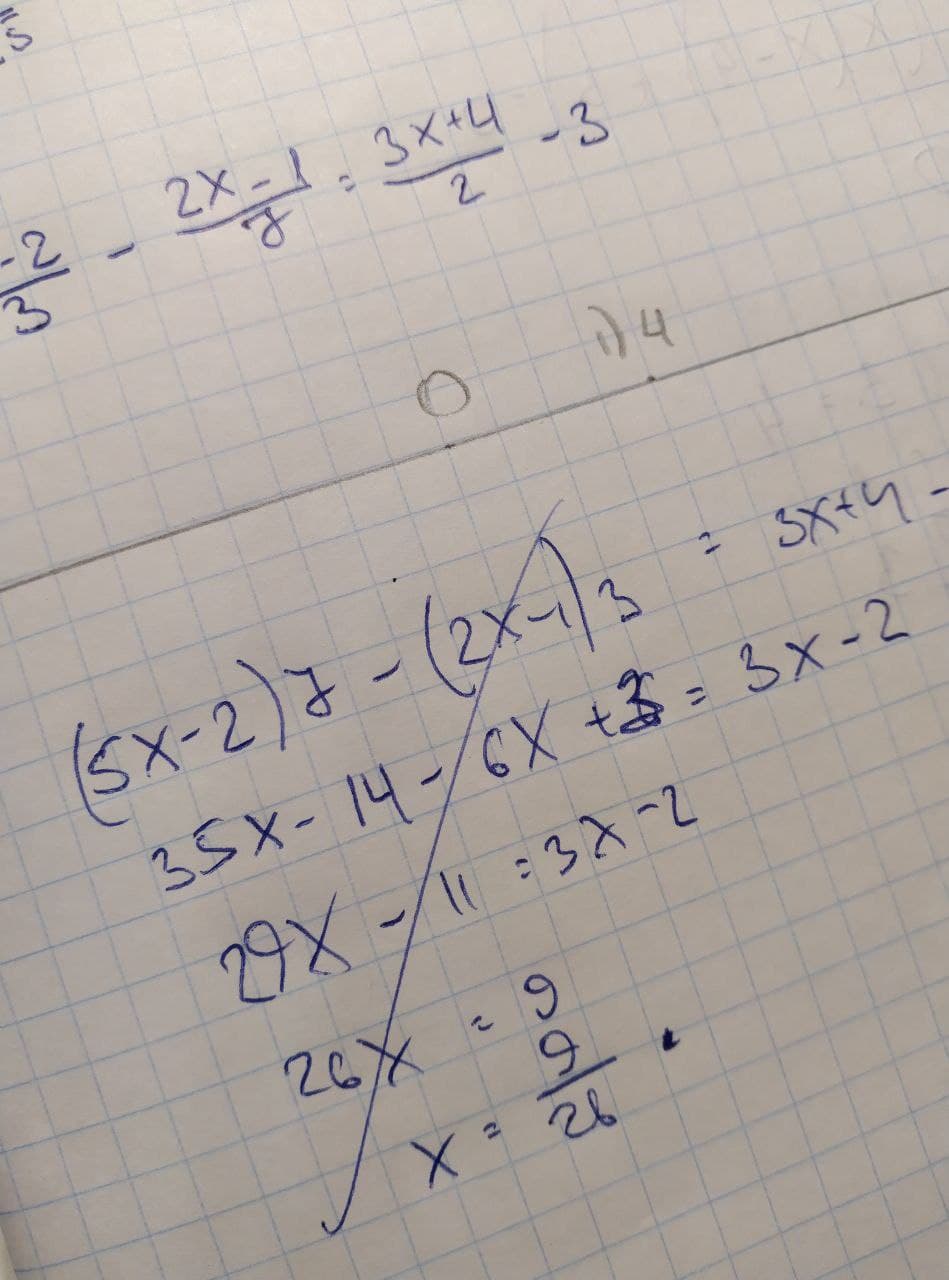 -2/3 - 2x-1/7 = 3x+4/2 - 3
0 1) 4
(5x-2)7 - (2x-1)3 = 3x+4 -
35x - 14 - 6x + 3 = 3x - 2
29x - 11 = 3x - 2
26x = 9
x = 9/26